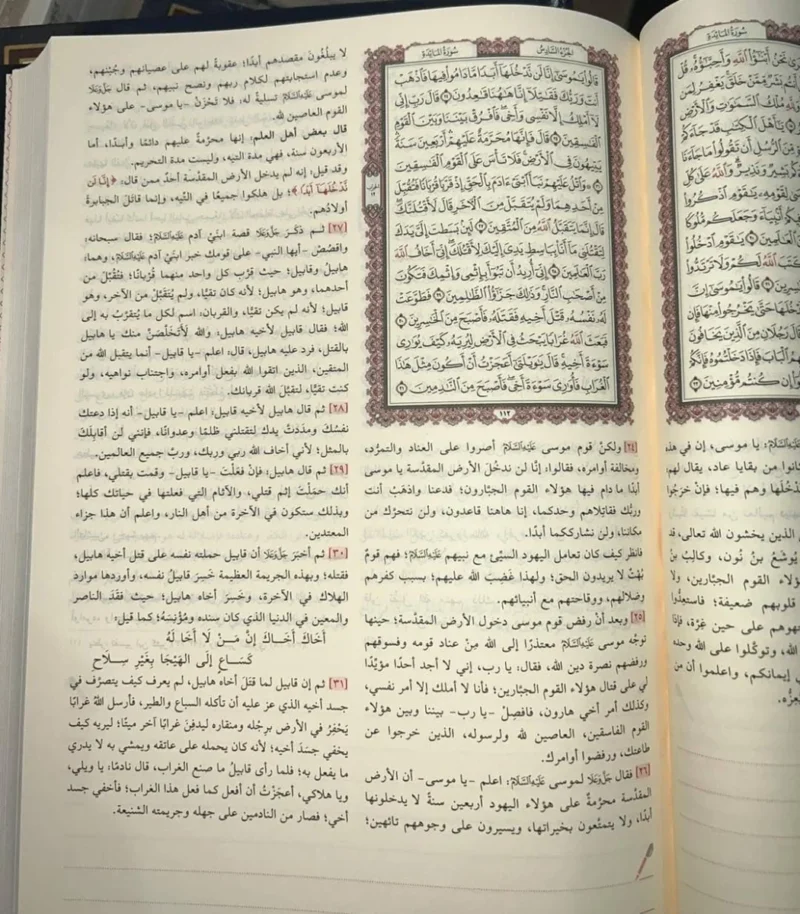 سُورَةُ المَائِدَةِ
الجزء السادس
قَالُوا يَامُوسَىٰ إِنَّا لَن نَّدْخُلَهَا أَبَدًا مَّا دَامُوا فِيهَا فَاذْهَبْ
أَنتَ وَرَبُّكَ فَقَاتِلَا إِنَّا هَاهُنَا قَاعِدُونَ ۝ قَالَ رَبِّ إِنِّي
لَا أَمْلِكُ إِلَّا نَفْسِي وَأَخِي فَافْرُقْ بَيْنَنَا وَبَيْنَ الْقَوْمِ
الْفَاسِقِينَ ۝ قَالَ فَإِنَّهَا مُحَرَّمَةٌ عَلَيْهِمْ أَرْبَعِينَ سَنَةً
يَتِيهُونَ فِي الْأَرْضِ فَلَا تَأْسَ عَلَى الْقَوْمِ الْفَاسِقِينَ
۝ وَاتْلُ عَلَيْهِمْ نَبَأَ ابْنَيْ آدَمَ بِالْحَقِّ إِذْ قَرَّبَا قُرْبَانًا فَتُقُبِّلَ
مِنْ أَحَدِهِمَا وَلَمْ يُتَقَبَّلْ مِنَ الْآخَرِ قَالَ لَأَقْتُلَنَّكَ
قَالَ إِنَّمَا يَتَقَبَّلُ اللَّهُ مِنَ الْمُتَّقِينَ ۝ لَئِن بَسَطتَ إِلَيَّ يَدَكَ
لِتَقْتُلَنِي مَا أَنَا بِبَاسِطٍ يَدِيَ إِلَيْكَ لِأَقْتُلَكَ إِنِّي أَخَافُ اللَّهَ
رَبَّ الْعَالَمِينَ ۝ إِنِّي أُرِيدُ أَن تَبُوأَ بِإِثْمِي وَإِثْمِكَ فَتَكُونَ
مِنْ أَصْحَابِ النَّارِ وَذَٰلِكَ جَزَاءُ الظَّالِمِينَ ۝ فَطَوَّعَتْ
لَهُ نَفْسُهُ قَتْلَ أَخِيهِ فَقَتَلَهُ فَأَصْبَحَ مِنَ الْخَاسِرِينَ ۝
فَبَعَثَ اللَّهُ غُرَابًا يَبْحَثُ فِي الْأَرْضِ لِيُرِيَهُ كَيْفَ يُوَارِي
سَوْءَةَ أَخِيهِ قَالَ يَاوَيْلَتَىٰ أَعَجَزْتُ أَنْ أَكُونَ مِثْلَ هَٰذَا
الْغُرَابِ فَأُوَارِيَ سَوْءَةَ أَخِي فَأَصْبَحَ مِنَ النَّادِمِينَ ۝
١١٢
[٢٤] ولكنْ قوم موسى عَلَيْهِ السَّلَامُ أصروا على العناد والتمرُّد،
ومخالفة أوامره، فقالوا: إنَّا لن ندخُلَ الأرضَ المقدَّسة يا موسى
أبدًا ما دام فيها هؤلاء القوم الجبَّارون؛ فدعنا واذهَبْ أنت
وربُّك فقاتِلاهم وحدكما، إنا هاهنا قاعدون، ولن نتحرَّك من
مكاننا، ولن نشارككما أبدًا.
فانظر كيف كان تعامل اليهود السيِّئ مع نبيهم عَلَيْهِ السَّلَامُ؛ فهم قومٌ
بُهْتٌ لا يريدون الحق؛ ولهذا غَضِبَ الله عليهم؛ بسبب كفرهم
وضلالهم، ووقاحتهم مع أنبيائهم.
[٢٥] وبعد أنْ رفض قوم موسى دخول الأرض المقدَّسة؛ حينها
توجَّه موسى عَلَيْهِ السَّلَامُ معتذرًا إلى الله مِنْ عناد قومه وفسوقهم
ورفضهم نصرة دين الله، فقال: يا رب، إني لا أجد أحدًا مؤيِّدًا
لي على قتال هؤلاء القوم الجبَّارين؛ فأنا لا أملك إلا أمر نفسي،
وكذلك أمر أخي هارون، فافصِلْ -يا رب- بيننا وبين هؤلاء
القوم الفاسقين، العاصين لله ولرسوله، الذين خرجوا عن
طاعتك، ورفضوا أوامرك.
[٢٦] فقال جَلَّ وَعَلَا لموسى عَلَيْهِ السَّلَامُ: اعلم -يا موسى- أن الأرض
المقدَّسة محرَّمةٌ على هؤلاء اليهود أربعين سنةً لا يدخلونها
أبدًا، ولا يتمتَّعون بخيراتها، ويسيرون على وجوههم تائهين؛
لا يبلُغُونَ مقصدهم أبدًا؛ عقوبةً لهم على عصيانهم وجُبْنهم،
وعدم استجابتهم لكلام ربهم ونصح نبيهم، ثم قال جَلَّ وَعَلَا
لموسى عَلَيْهِ السَّلَامُ تسليةً له: فلا تَحْزَنْ -يا موسى- على هؤلاء
القوم العاصين لله.
قال بعض أهل العلم: إنها محرَّمةٌ عليهم دائمًا وأبدًا، أما
الأربعون سنة، فهي مدة التيه، وليست مدة التحريم.
وقد قيل: إنه لم يدخل الأرض المقدَّسة أحدٌ ممن قال: ﴿إِنَّا لَن
نَّدْخُلَهَا أَبَدًا﴾؛ بل هلكوا جميعًا في التِّيه، وإنما قاتَلَ الجبابرةَ
أولادُهم.
[٢٧] ثم ذكَرَ جَلَّ وَعَلَا قصة ابنَيْ آدم عَلَيْهِ السَّلَامُ؛ فقال سبحانه:
واقصُصْ -أيها النبي- على قومك خبر ابنَيْ آدم عَلَيْهِ السَّلَامُ، وهما:
هابيل وقابيل؛ حيث قرَّب كل واحد منهما قُرْبانًا؛ فتُقُبِّلَ من
أحدهما، وهو هابيل؛ لأنه كان تقيًّا، ولم يُتقبَّلْ من الآخر، وهو
قابيل؛ لأنه لم يكن تقيًّا، والقربان: اسم لكل ما يُتقرَّبُ به إلى
الله؛ فقال قابيل لأخيه هابيل: والله لأتخلَّصَنَّ منك يا هابيل
بالقتل، فرد عليه هابيل، قال: اعلم -يا قابيل- أنما يتقبل الله من
المتقين، الذين اتقوا الله بفعل أوامره، واجتناب نواهيه، ولو
كنت تقيًّا، لتقبَّلَ الله قربانك.
[٢٨] ثم قال هابيل لأخيه قابيل: اعلم -يا قابيل- أنه إذا دعتك
نفسُكَ ومدَدتَ يدك لتقتلني ظلمًا وعدوانًا، فإنني لن أقابِلَكَ
بالمثل؛ لأني أخاف الله ربي وربك، وربَّ جميع العالمين.
[٢٩] ثم قال هابيل: فإنْ فعَلْتَ -يا قابيل- وقمت بقتلي، فاعلم
أنك حمَلْتَ إثم قتلي، والآثام التي فعلتها في حياتك كلها؛
وبذلك ستكون في الآخرة من أهل النار، واعلم أن هذا جزاء
المعتدين.
[٣٠] ثم أخبَرَ جَلَّ وَعَلَا أن قابيل حملته نفسه على قتل أخيه هابيل،
فقتله؛ وبهذه الجريمة العظيمة خَسِرَ قابيلُ نفسه، وأوردها موارد
الهلاك في الآخرة، وخَسِرَ أخاه هابيل؛ حيث فقَدَ الناصر
والمعين في الدنيا الذي كان سنده ومُؤْنِسَهُ؛ كما قيل:
أَخَاكَ أَخَاكَ إِنَّ مَنْ لَا أَخَا لَهُ
كَسَاعٍ إِلَى الهَيْجَا بِغَيْرِ سِلَاحِ
[٣١] ثم إن قابيل لما قتل أخاه هابيل، لم يعرف كيف يتصرَّف في
جسد أخيه الذي عز عليه أن تأكله السباع والطير، فأرسل اللهُ غرابًا
يَحْفِرُ في الأرض برِجْله ومنقاره ليدفِنَ غرابًا آخر ميتًا؛ ليريه كيف
يخفي جسَدَ أخيه؛ لأنه كان يحمله على عاتقه ويمشي به لا يدري
ما يفعل به؛ فلما رأى قابيل ما صنع الغراب، قال نادمًا: يا ويلي،
ويا هلاكي، أعجَزْتُ أن أفعل كما فعل هذا الغراب؛ فأخفي جسد
أخي؛ فصار من النادمين على جهله وجريمته الشنيعة.
سُورَةُ المَائِدَةِ